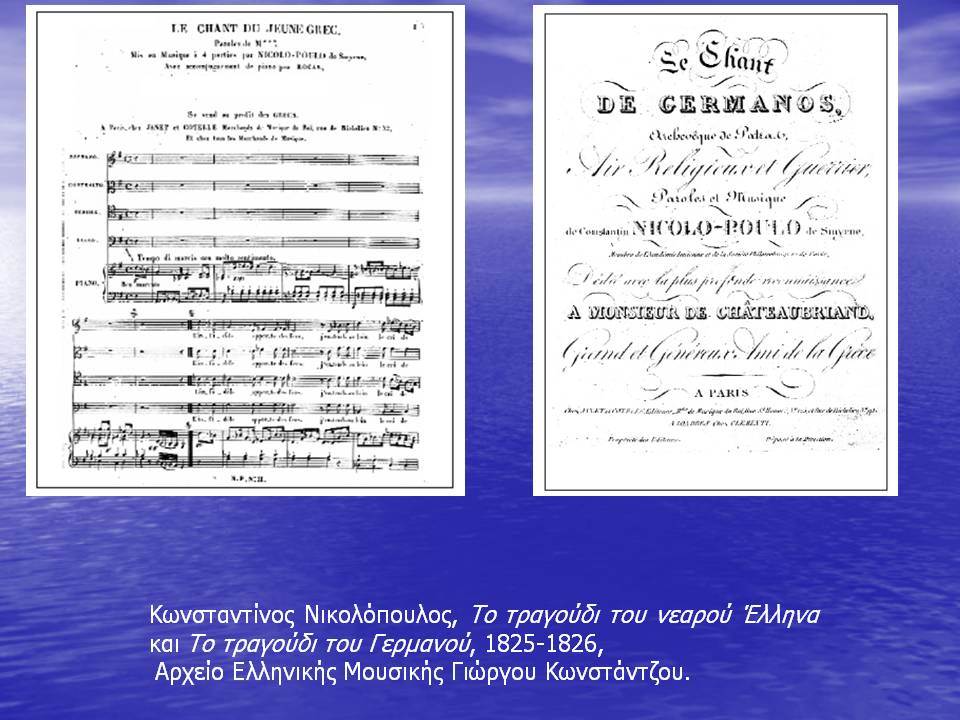 LE CHANT DU JEUNE GREC.
Paroles de M***
Mis en Musique à 4 parties par NICOLO-POULO de Smyrne,
Avec accompagnement de piano par
Se vend au profit des GRECS.
A Paris, chez JANET et COTELLE Marchands de Musique du Roi, rue de Richelieu N°
Et chez tous les Marchands de Musique.
SOPRANO.
CONTRALTO.
TENORE.
BASSO.
Tempo di marcia con molto sentimento.
PIANO.
Le Chant
DE GERMANOS,
Archevêque de Patras,
Air Religieux et Guerrier,
Paroles et Musique
de Constantin NICOLO-POULO de Smyrne,
Dédié avec la plus profonde reconnaissance
A MONSIEUR DE CHÂTEAUBRIAND,
Grand et Généreux Ami de la Grèce
A PARIS
A LONDRES Chez CLEMENTI.
Propriété des Editeurs. Déposé à la Direction.
Κωνσταντίνος Νικολόπουλος, Το τραγούδι του νεαρού Έλληνα
και Το τραγούδι του Γερμανού, 1825-1826,
Αρχείο Ελληνικής Μουσικής Γιώργου Κωνστάντζου.